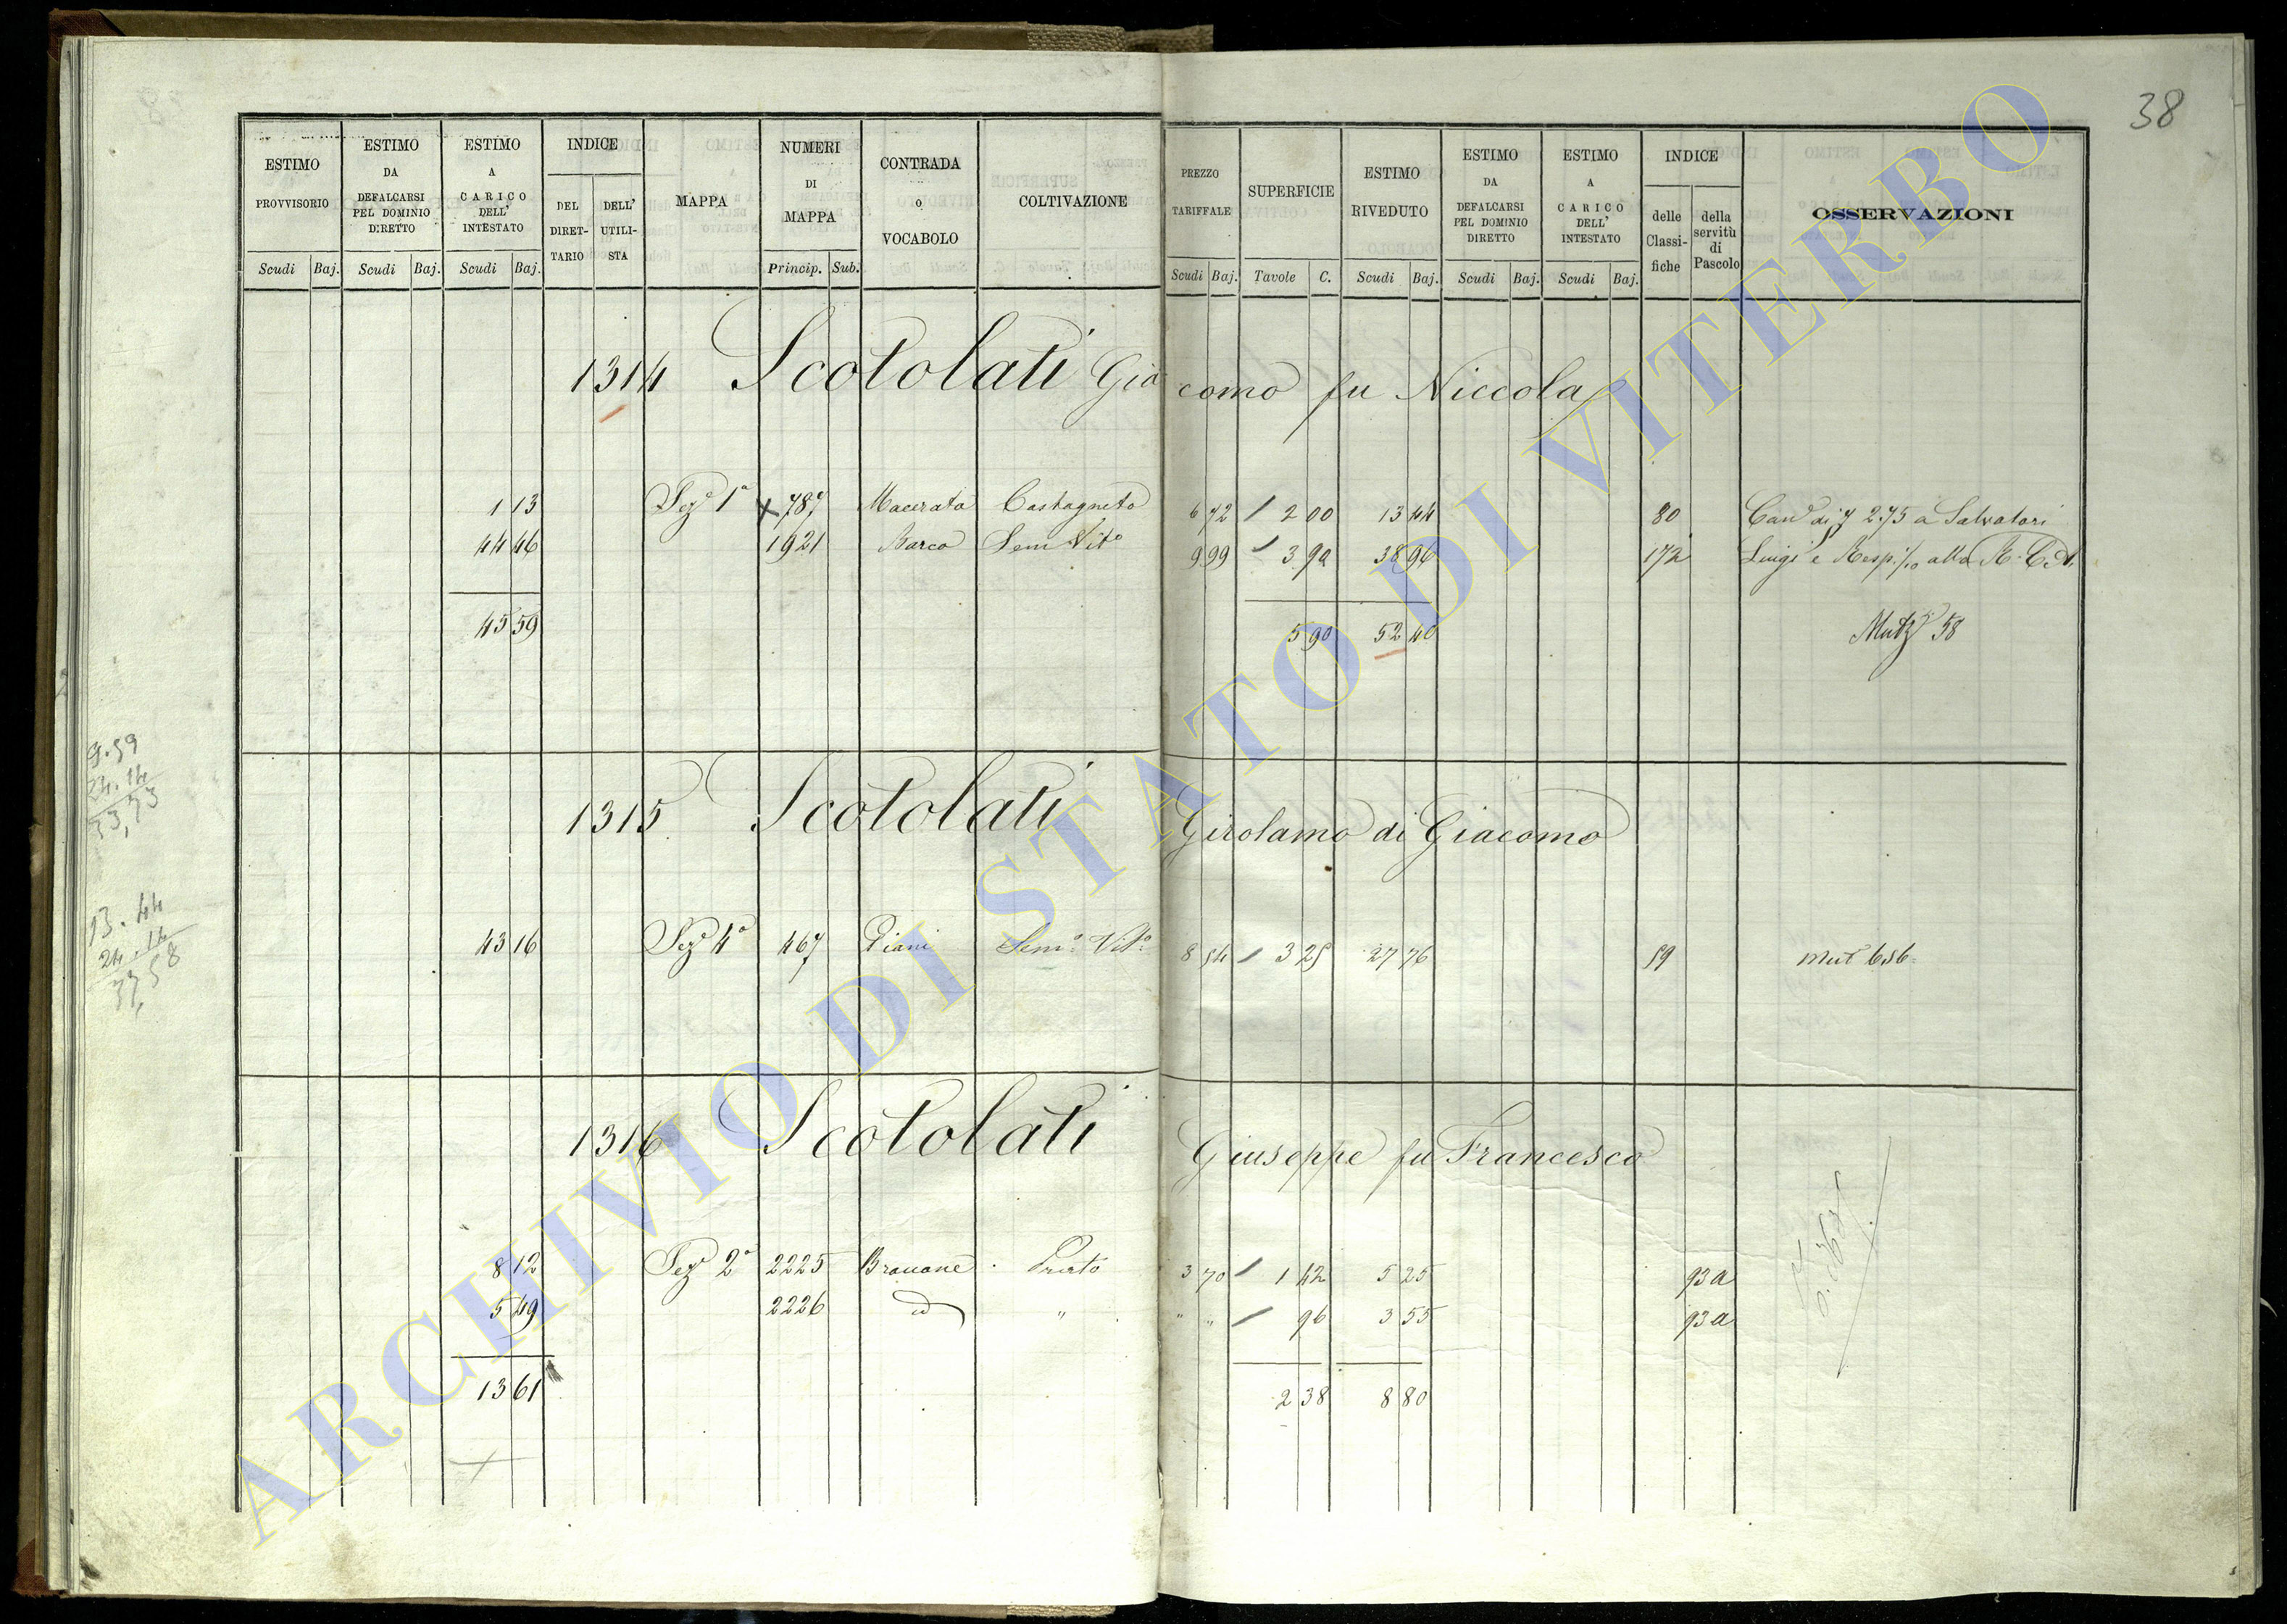 38
ESTIMO PROVVISORIO
ESTIMO DA DEFALCARSI PEL DOMINIO DIRETTO
ESTIMO A CARICO DELL' INTESTATO
INDICE
DEL DIRETTARIO
DELL' UTILISTA
MAPPA
NUMERI DI MAPPA
CONTRADA o VOCABOLO
COLTIVAZIONE
PREZZO TARIFFALE
SUPERFICIE
ESTIMO RIVEDUTO
ESTIMO DA DEFALCARSI PEL DOMINIO DIRETTO
ESTIMO A CARICO DELL' INTESTATO
INDICE
delle Classifiche
della servitù di Pascolo
OSSERVAZIONI
Scudi Baj. Scudi Baj. Scudi Baj. Princip. Sub. Scudi Baj. Tavole C. Scudi Baj. Scudi Baj. Scudi Baj.
1314 Scotolati Giacomo fu Niccola
1 13 Sez.e 1a x 787 Macerata Castagneto 6 72 / 2 00 13 44 80 di 2.75 a Salvatori
44 46 1921 Barco Sem Vito 9 99 / 3 90 38 96 172 Luigi e alla
45 59 5 90 52 40 58
9.59
24.14
33,73
1315 Scotolati Girolamo di Giacomo
13.44
24.14
37,58
43 16 Sez.e 4a 467 Piani Sem.o Vit.o 8 54 / 3 25 27 76 59 mut 656
1316 Scotolati Giuseppe fu Francesco
8 12 Sez.e 2a 2225 Prato 3 70 / 1 42 5 25 93a
5 49 2226 id " " " / 96 3 55 93a
13 61 2 38 8 80
ARCHIVIO DI STATO DI VITERBO